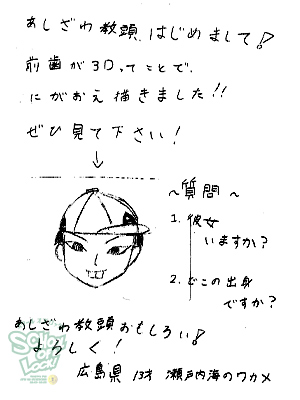 あしざわ教頭 はじめまして!
前歯が3Dってことで、
にがおえ描きました!!
ぜひ見て下さい!
↓
〜質問〜
1. 彼女
いますか?
2. どこの出身
ですか?
あしざわ教頭おもしろい!
よろしく!
広島県 13才 瀬戸内海のワカメ
School of Lock!